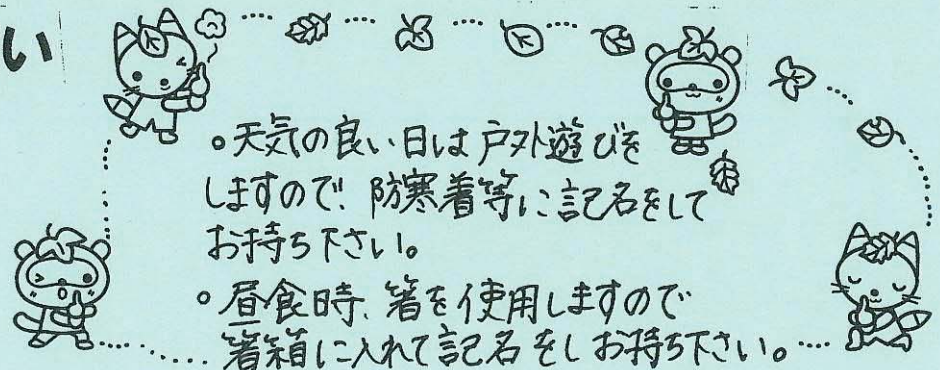 い
。天気の良い日は戸外遊びを
しますので、防寒着等に記名をして
お持ち下さい。
。昼食時、箸を使用しますので
箸箱に入れて記名をしお持ち下さい。